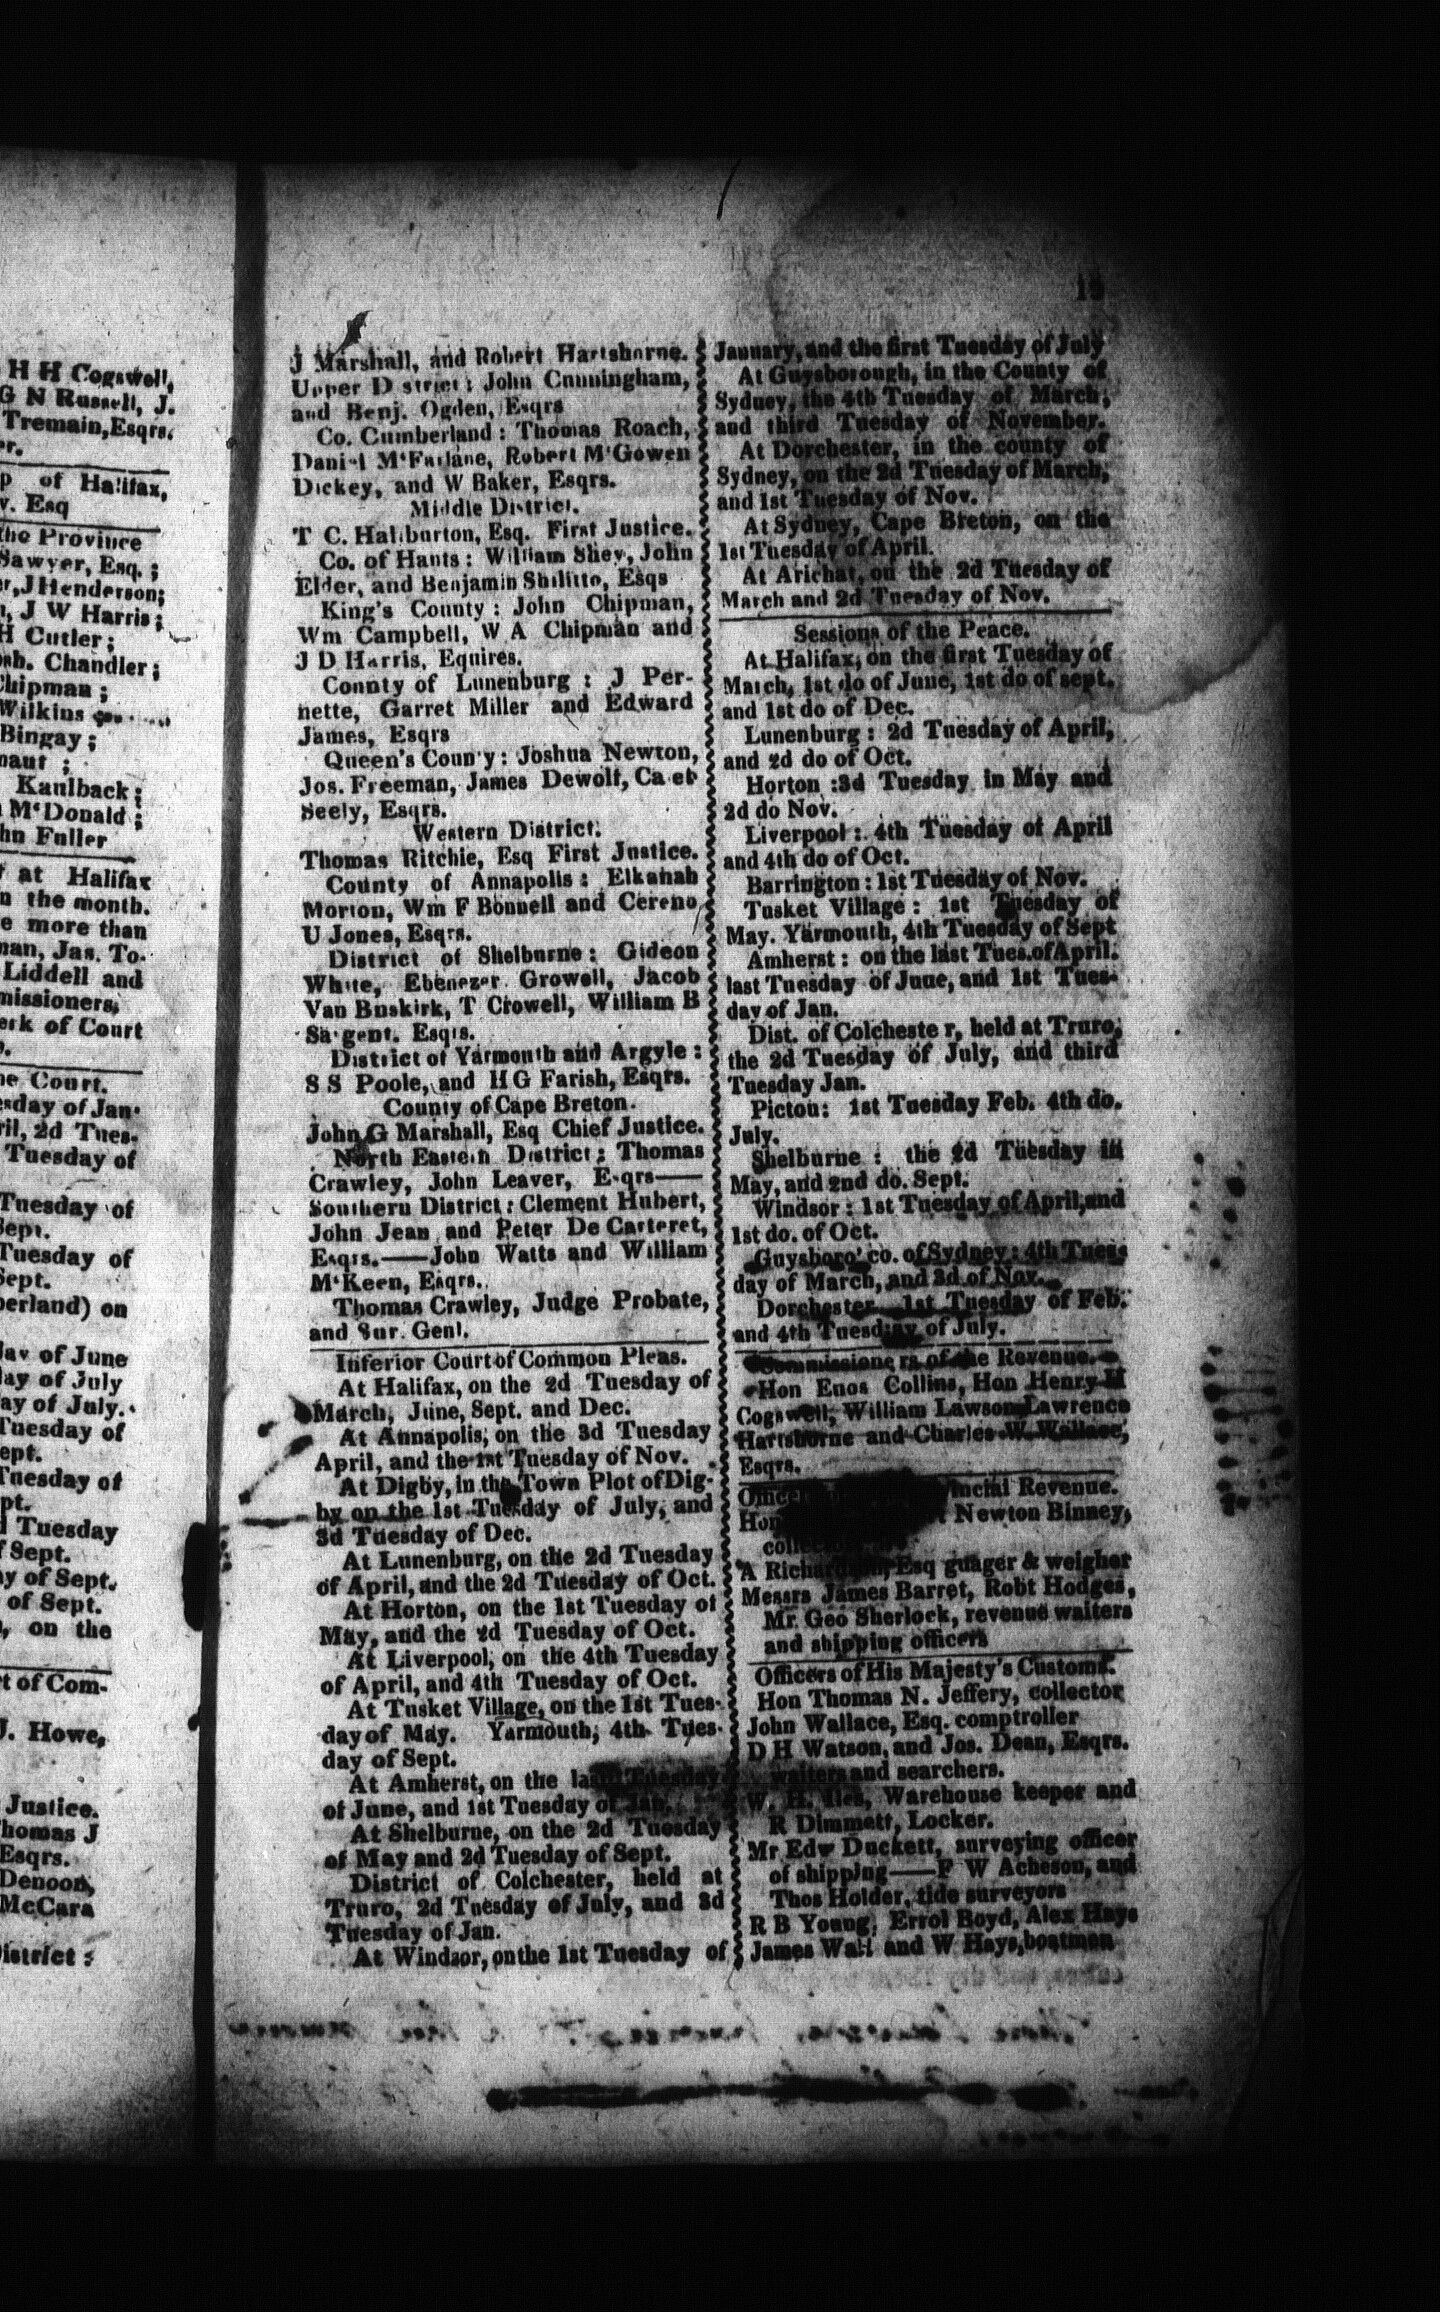 H H Cogswell,
G N Russell, J.
Tremain, Esqrs.
er.
p of Halifax,
v. Esq
the Province
Sawyer, Esq.;
er, J Henderson;
n, J W Harris;
H Cutler;
osh. Chandler;
Chipman;
Wilkins
Bingay;
naut;
Kaulback;
n M'Donald;
hn Fuller
r at Halifax
n the month.
e more than
man, Jas. To-
Liddell and
missioners,
erk of Court
o.
he Court.
esday of Jan-
ril, 2d Tues-
Tuesday of
Tuesday of
Sept.
Tuesday of
Sept.
berland) on
day of June
day of July
ay of July.
Tuesday of
ept.
Tuesday of
pt.
d Tuesday
f Sept.
ay of Sept.
of Sept.
, on the
rt of Com-
J. Howe,
Justice.
Thomas J
Esqrs.
Denoon,
McCara
District:
J Marshall, and Robert Hartshorne.
Upper District: John Cunningham,
and Benj. Ogden, Esqrs
Co. Cumberland: Thomas Roach,
Daniel M'Farlane, Robert M'Gowen
Dickey, and W Baker, Esqrs.
Middle District.
T C. Haliburton, Esq. First Justice.
Co. of Hants: William Shey, John
Elder, and Benjamin Shilitto, Esqs
King's County: John Chipman,
Wm Campbell, W A Chipman and
J D Harris, Equires.
County of Lunenburg: J Per-
nette, Garret Miller and Edward
James, Esqrs
Queen's County: Joshua Newton,
Jos. Freeman, James Dewolf, Caleb
Seely, Esqrs.
Western District.
Thomas Ritchie, Esq First Justice.
County of Annapolis: Elkanah
Morton, Wm F Bonnell and Cereno
U Jones, Esqrs.
District of Shelburne: Gideon
White, Ebenezer Growell, Jacob
Van Buskirk, T Crowell, William B
Sargent. Esqrs.
District of Yarmouth and Argyle:
S S Poole, and H G Farish, Esqrs.
County of Cape Breton.
John G Marshall, Esq Chief Justice.
North Eastern District: Thomas
Crawley, John Leaver, Esqrs——
Southern District: Clement Hubert,
John Jean and Peter De Carteret,
Esqrs.——John Watts and William
M'Keen, Esqrs.
Thomas Crawley, Judge Probate,
and Sur. Genl.
Inferior Court of Common Pleas.
At Halifax, on the 2d Tuesday of
March, June, Sept. and Dec.
At Annapolis, on the 3d Tuesday
April, and the 1st Tuesday of Nov.
At Digby, in the Town Plot of Dig-
by on the 1st Tuesday of July, and
3d Tuesday of Dec.
At Lunenburg, on the 2d Tuesday
of April, and the 2d Tuesday of Oct.
At Horton, on the 1st Tuesday of
May, and the 2d Tuesday of Oct.
At Liverpool, on the 4th Tuesday
of April, and 4th Tuesday of Oct.
At Tusket Village, on the 1st Tues-
day of May. Yarmouth, 4th Tues-
day of Sept.
At Amherst, on the last Tuesday
of June, and 1st Tuesday of Jan.
At Shelburne, on the 2d Tuesday
of May and 2d Tuesday of Sept.
District of Colchester, held at
Truro, 2d Tuesday of July, and 3d
Tuesday of Jan.
At Windsor, on the 1st Tuesday of
January, and the first Tuesday of July
At Guysborough, in the County of
Sydney, the 4th Tuesday of March,
and third Tuesday of November.
At Dorchester, in the county of
Sydney, on the 2d Tuesday of March,
and 1st Tuesday of Nov.
At Sydney, Cape Breton, on the
1st Tuesday of April.
At Arichat, on the 2d Tuesday of
March and 2d Tuesday of Nov.
Sessions of the Peace.
At Halifax, on the first Tuesday of
March, 1st do of June, 1st do of sept.
and 1st do of Dec.
Lunenburg: 2d Tuesday of April,
and 2d do of Oct.
Horton: 3d Tuesday in May and
2d do Nov.
Liverpool: 4th Tuesday of April
and 4th do of Oct.
Barrington: 1st Tuesday of Nov.
Tusket Village: 1st Tuesday of
May. Yarmouth, 4th Tuesday of Sept
Amherst: on the last Tues. of April.
last Tuesday of June, and 1st Tues-
day of Jan.
Dist. of Colchester, held at Truro,
the 2d Tuesday of July, and third
Tuesday Jan.
Pictou: 1st Tuesday Feb. 4th do.
July.
Shelburne: the 2d Tuesday in
May, and 2nd do. Sept.
Windsor: 1st Tuesday of April, and
1st do. of Oct.
Guysboro' co. of Sydney: 4th Tues-
day of March, and 3d of Nov.
Dorchester 1st Tuesday of Feb.
and 4th Tuesday of July.
Commissioners of the Revenue.
Hon Enos Collins, Hon Henry H
Cogswell, William Lawson Lawrence
Hartshorne and Charles W Wallace,
Esqrs.
Officers vincial Revenue.
Hon Newton Binney,
collector
A Richardson, Esq guager & weigher
Messrs James Barret, Robt Hodges,
Mr. Geo Sherlock, revenue waiters
and shipping officers
Officers of His Majesty's Customs.
Hon Thomas N. Jeffery, collector
John Wallace, Esq. comptroller
D H Watson, and Jos. Dean, Esqrs.
waiters and searchers.
W. H. Warehouse keeper and
R Dimmett, Locker.
Mr Edw Duckett, surveying officer
of shipping——F W Acheson, and
Thos Holder, tide surveyors
R B Young, Errol Boyd, Alex Hays
James Wall and W Hays, boatmen